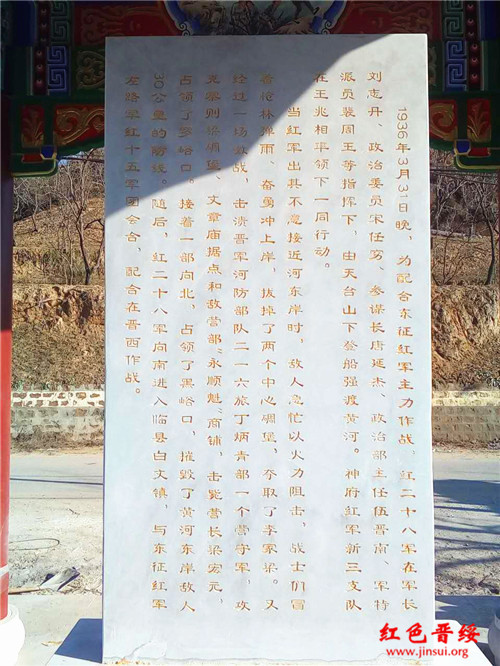 1936年3月31日晚，为配合东征红军主力作战，红二十八军在军长
刘志丹、政治委员宋任穷、参谋长唐延杰、政治部主任伍晋南、军特
派员裴周玉等指挥下，由天台山下登船强渡黄河。神府红军新三支队
在王兆相率领下一同行动。
当红军出其不意接近河东岸时，敌人急忙以火力阻击，战士们冒
着枪林弹雨，奋勇冲上岸，拔掉了两个中心碉堡，夺取了李家梁。又
经过一场激战，击溃晋军河防部队二一六旅丁炳青部一个营守军，攻
克寨则梁碉堡、文章庙据点和敌营部“永顺魁”商铺，击毙营长梁宏元，
占领了罗峪口。接着一部向北，占领了黑峪口，摧毁了黄河东岸敌人
30公里的防线。随后，红二十八军向南进入临县白文镇，与东征红军
左路军红十五军团会合，配合在晋西作战。
红色晋绥
www.jinsui.org